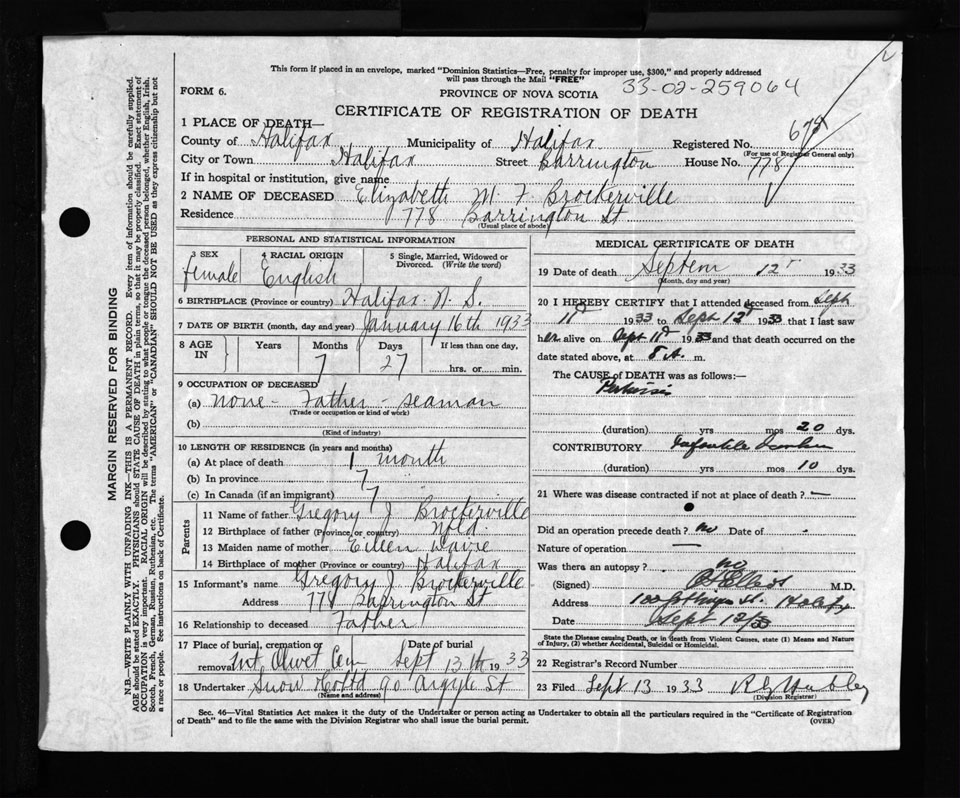 This form if placed in an envelope, marked "Dominion Statistics—Free, penalty for improper use, $300," and properly addressed
will pass through the Mail "FREE"
33-02-259064
FORM 6.
PROVINCE OF NOVA SCOTIA
CERTIFICATE OF REGISTRATION OF DEATH
1 PLACE OF DEATH—
675
County of Halifax Municipality of Halifax Registered No.
(For use of Registrar General only)
City or Town Halifax Street Barrington House No. 778
If in hospital or institution, give name
2 NAME OF DECEASED Elizabeth M F Brockerville
Residence 778 Barrington St
(Usual place of abode)
PERSONAL AND STATISTICAL INFORMATION
3 SEX 4 RACIAL ORIGIN 5 Single, Married, Widowed or
Divorced. (Write the word)
female English
6 BIRTHPLACE (Province or country) Halifax N. S.
7 DATE OF BIRTH (month, day and year) January 16th 1933
8 AGE IN Years Months Days If less than one day,
7 27 hrs. or min.
9 OCCUPATION OF DECEASED
(a) none - Father - seaman
(Trade or occupation or kind of work)
(b)
(Kind of industry)
10 LENGTH OF RESIDENCE (in years and months)
(a) At place of death 1 month
(b) In province 7
(c) In Canada (if an immigrant) 7
Parents
11 Name of father Gregory J Brockerville
12 Birthplace of father (Province or country) Nfld.
13 Maiden name of mother Eileen
14 Birthplace of mother (Province or country) Halifax
15 Informant's name Gregory J Brockerville
Address 778 Barrington St
16 Relationship to deceased Father
17 Place of burial, cremation or Date of burial
removal Mt Olivet Cem Sept 13th 1933
18 Undertaker Snow Co Ltd 90 Argyle St
(Name and address)
MEDICAL CERTIFICATE OF DEATH
19 Date of death Septem 12th 1933
(Month, day and year)
20 I HEREBY CERTIFY that I attended deceased from Sept
11th 1933 to Sept 12th 1933 that I last saw
her alive on Sept 11th 1933 and that death occurred on the
date stated above, at 8 A. m.
The CAUSE of DEATH was as follows:—
Pertussis
(duration) yrs mos 20 dys.
CONTRIBUTORY Infantile
(duration) yrs mos 10 dys.
21 Where was disease contracted if not at place of death? —
Did an operation precede death? no Date of
Nature of operation —
Was there an autopsy? no
(Signed) M.D.
Address St. Halifax
Date Sept 12/33
State the Disease causing Death, or in death from Violent Causes, state (1) Means and Nature
of Injury, (2) whether Accidental, Suicidal or Homicidal.
22 Registrar's Record Number
23 Filed Sept 13 1933
(Division Registrar)
Sec. 46—Vital Statistics Act makes it the duty of the Undertaker or person acting as Undertaker to obtain all the particulars required in the "Certificate of Registration
of Death" and to file the same with the Division Registrar who shall issue the burial permit.
(OVER)
MARGIN RESERVED FOR BINDING
N.B.—WRITE PLAINLY WITH UNFADING INK—THIS IS A PERMANENT RECORD. Every item of information should be carefully supplied.
AGE should be stated EXACTLY. PHYSICIANS should STATE CAUSE OF DEATH in plain terms, so that it may be properly classified. Exact statement of
OCCUPATION is very important. RACIAL ORIGIN will be described by stating to what people or tongue the deceased person belonged, whether English, Irish,
Scotch, French, German, Russian, Ruthenian, etc. The terms "AMERICAN" or "CANADIAN" SHOULD NOT BE USED as they express citizenship but not
a race or people. See instructions on back of Certificate.